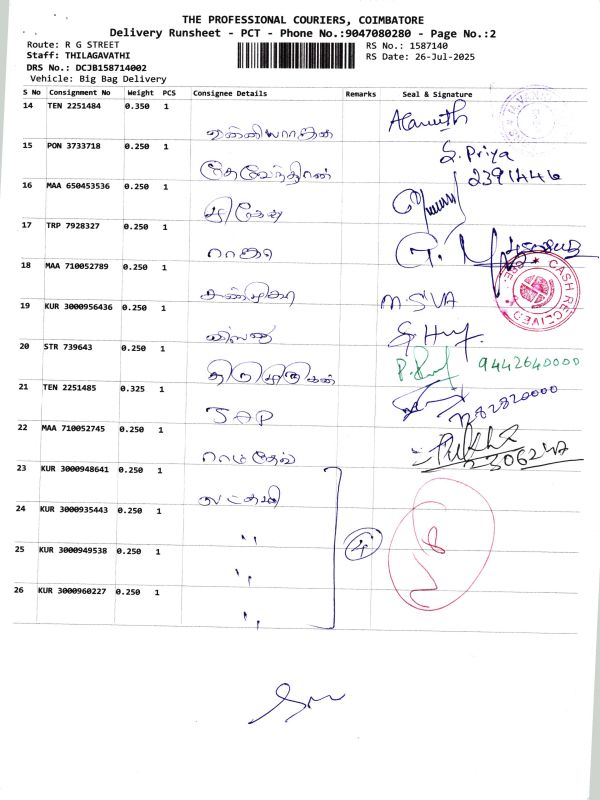 THE PROFESSIONAL COURIERS, COIMBATORE
Delivery Runsheet - PCT - Phone No.:9047080280 - Page No.:2
Route: R G STREET
RS No.: 1587140
Staff: THILAGAVATHI
RS Date: 26-Jul-2025
DRS No.: DCJB158714002
Vehicle: Big Bag Delivery
S No Consignment No Weight PCS Consignee Details Remarks Seal & Signature
14 TEN 2251484 0.350 1
15 PON 3733718 0.250 1 தேவேந்திரன் S. Priya 2391446
16 MAA 650453536 0.250 1
17 TRP 7928327 0.250 1 ராஜா
18 MAA 710052789 0.250 1 M. SIVA
CASH RECEIVED
19 KUR 3000956436 0.250 1
20 STR 739643 0.250 1 திருமுருகன் 9442640000
21 TEN 2251485 0.325 1 SAP
22 MAA 710052745 0.250 1 ராமதேவ்
23 KUR 3000948641 0.250 1 லட்சுமி
24 KUR 3000935443 0.250 1 ,, 4
25 KUR 3000949538 0.250 1 ,,
26 KUR 3000960227 0.250 1 ,,